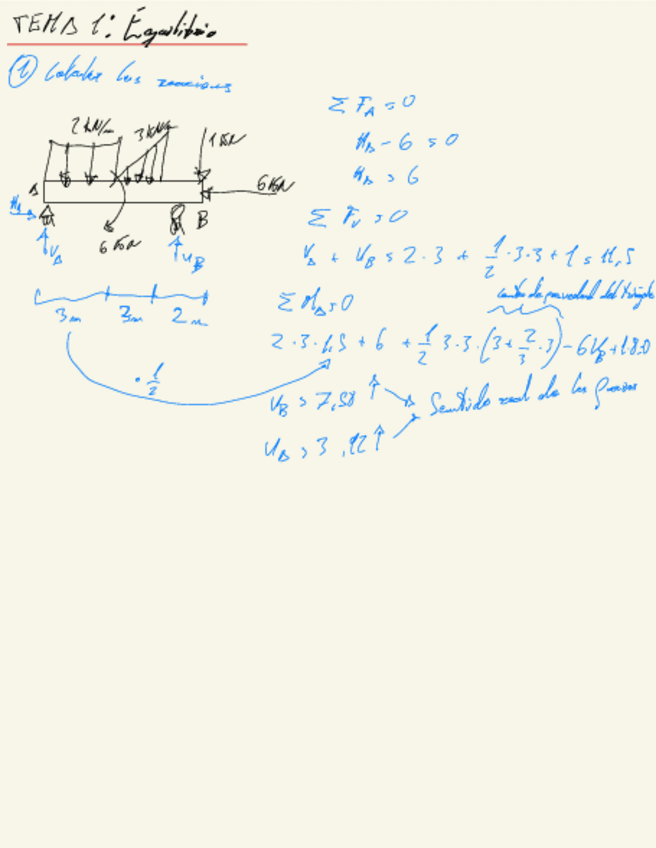 TEMA 1: Equilibrio
① Calcular las reacciones
2 kN/m
3 kN/m
1 kN
6 kN
A
B
H_A
V_A
6 kN
V_B
3m 3m 2m
· 1/2
Σ F_H = 0
H_A - 6 = 0
H_A = 6
Σ F_V = 0
V_A + V_B = 2·3 + 1/2·3·3 + 1 = 11,5
centro de gravedad del triángulo
Σ M_A = 0
2·3·1,5 + 6 + 1/2 3·3·(3+2/3·3) - 6V_B + 1·8=0
V_B = 7,58 ↑
Sentido real de las
V_A = 3,92 ↑